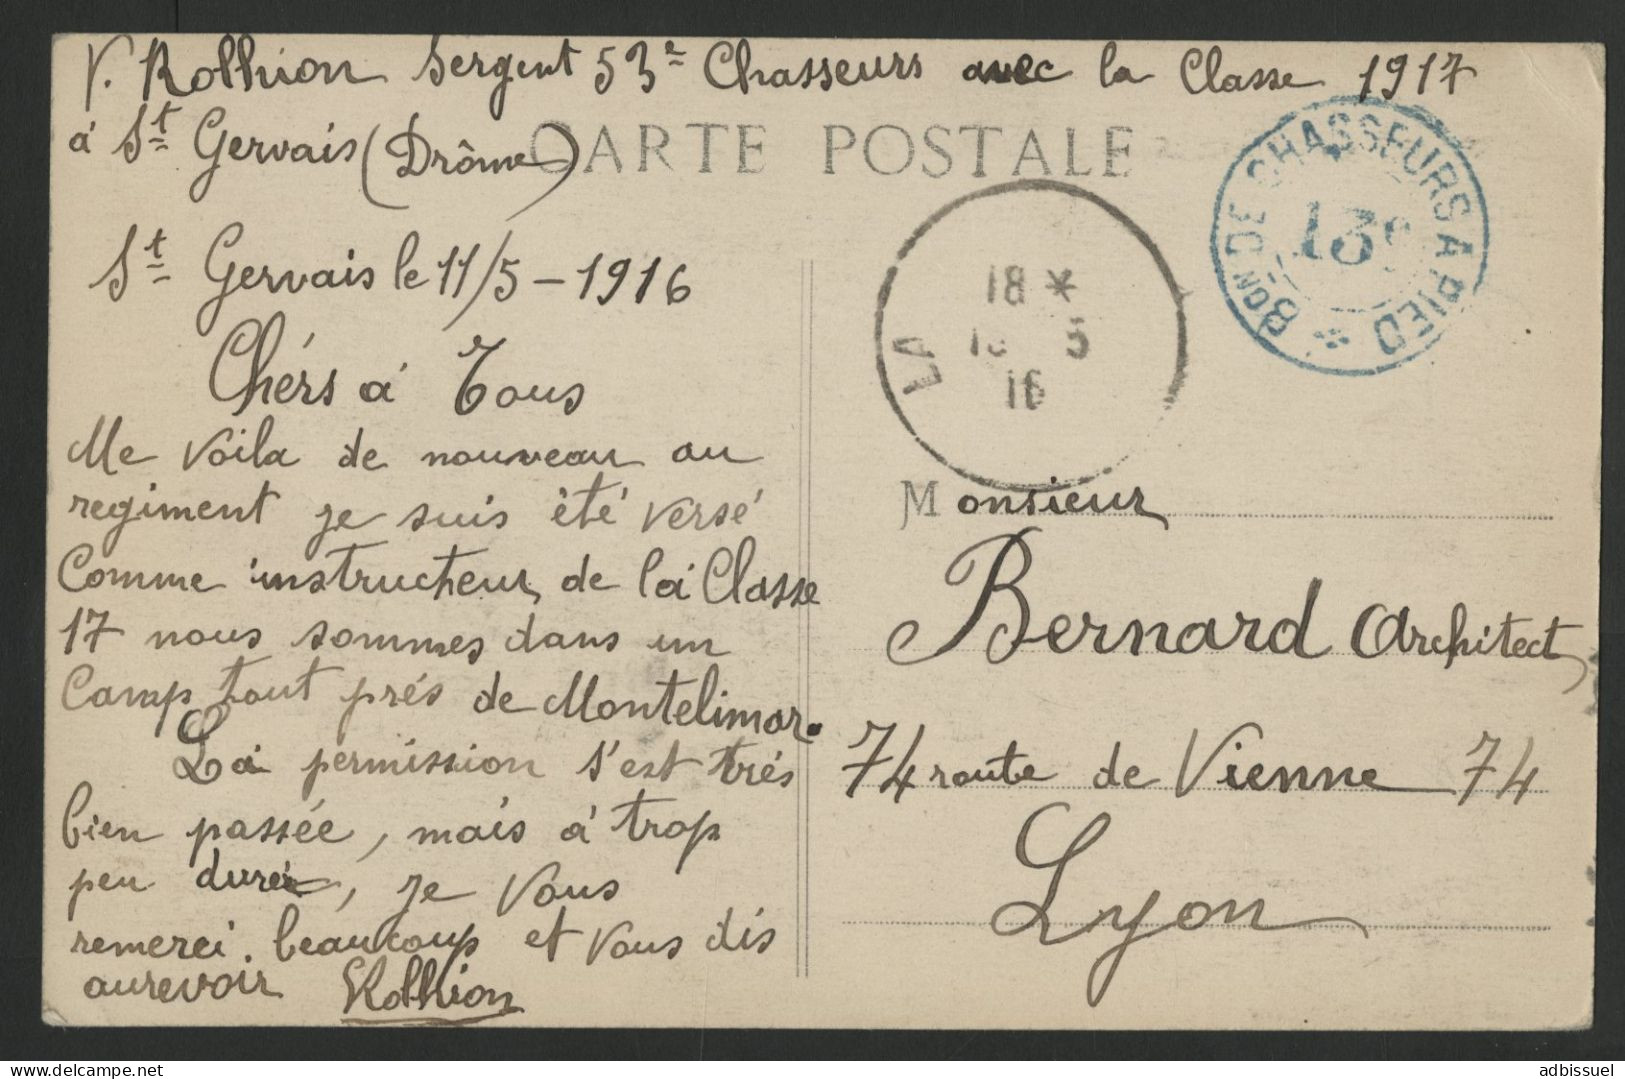 V. Rolhion Sergent 53e Chasseurs avec la Classe 1917
à St Gervais (Drôme)
CARTE POSTALE
BON DE CHASSEURS A PIED *
13e
St Gervais le 11/5 - 1916
18 *
5
16
LA
Chérs à Tous
Me voila de nouveau au
regiment je suis été versé
Comme instructeur de la Classe
17 nous sommes dans un
Camp tout prés de Montelimar.
La permission s'est trés
bien passée, mais à trop
peu durée, je vous
remerci. beaucoup et vous dis
aurevoir Rolhion
Monsieur
Bernard Architect
74 route de Vienne 74
Lyon
www.delcampe.net
adbissuel